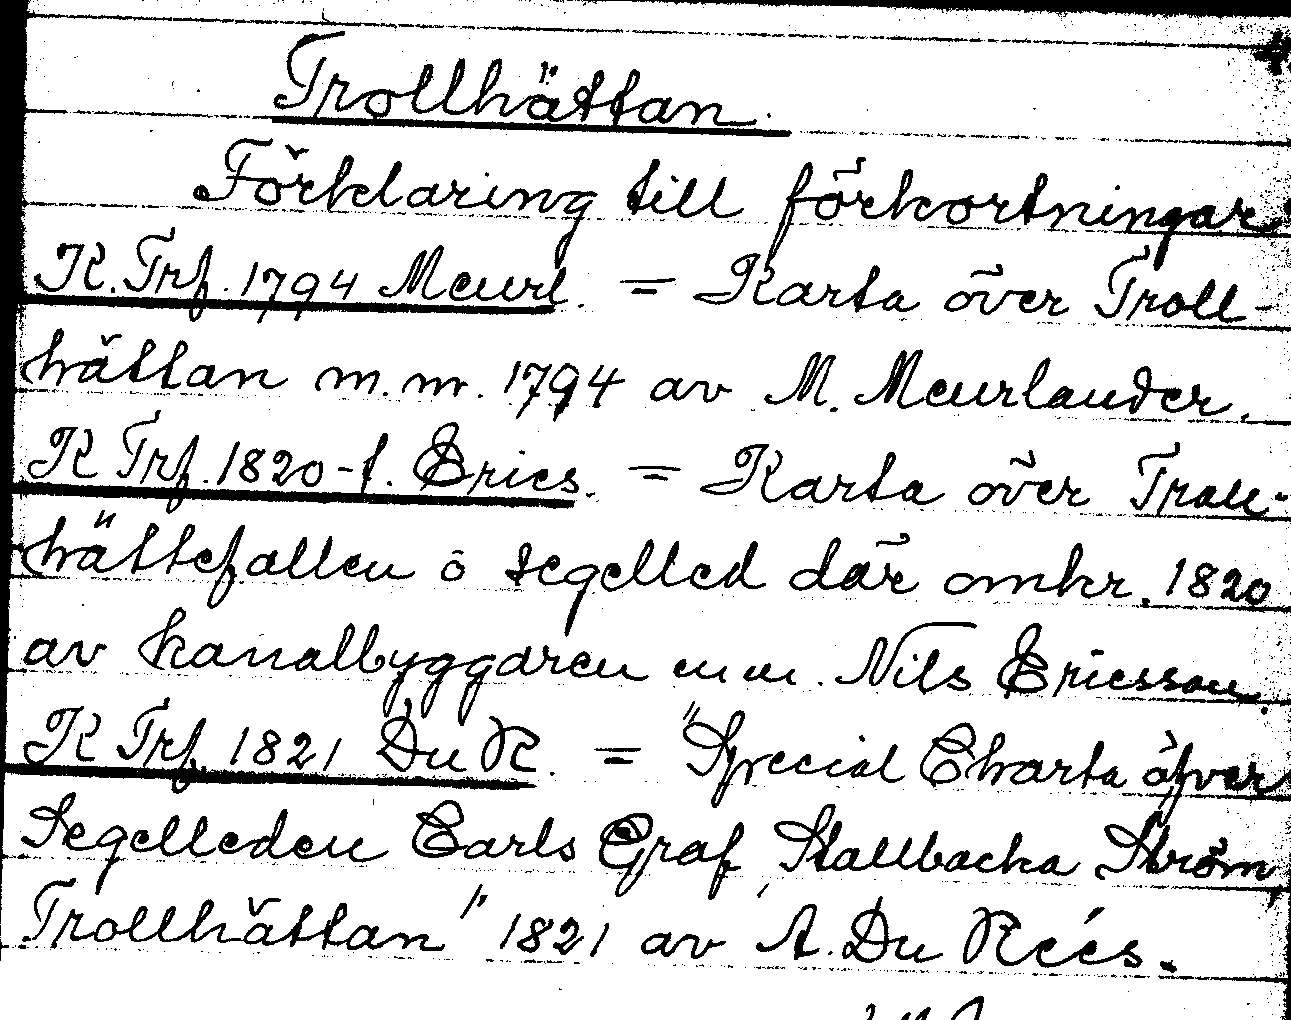 4
Trollhättan.
Förklaring till förkortningar.
K. Trf. 1794 Meurl. = Karta över Troll-
hättan m.m. 1794 av M. Meurlander.
K Trf. 1820-t. Erics. = Karta över Troll-
hättefallen o segelled där omkr. 1820
av kanalbyggaren m m. Nils Ericsson.
K Trf. 1821 Du R. = "Special Charta öfver
Segelleden Carls Graf, Stallbacka Ström,
Trollhättan" 1821 av A. Du Rées.